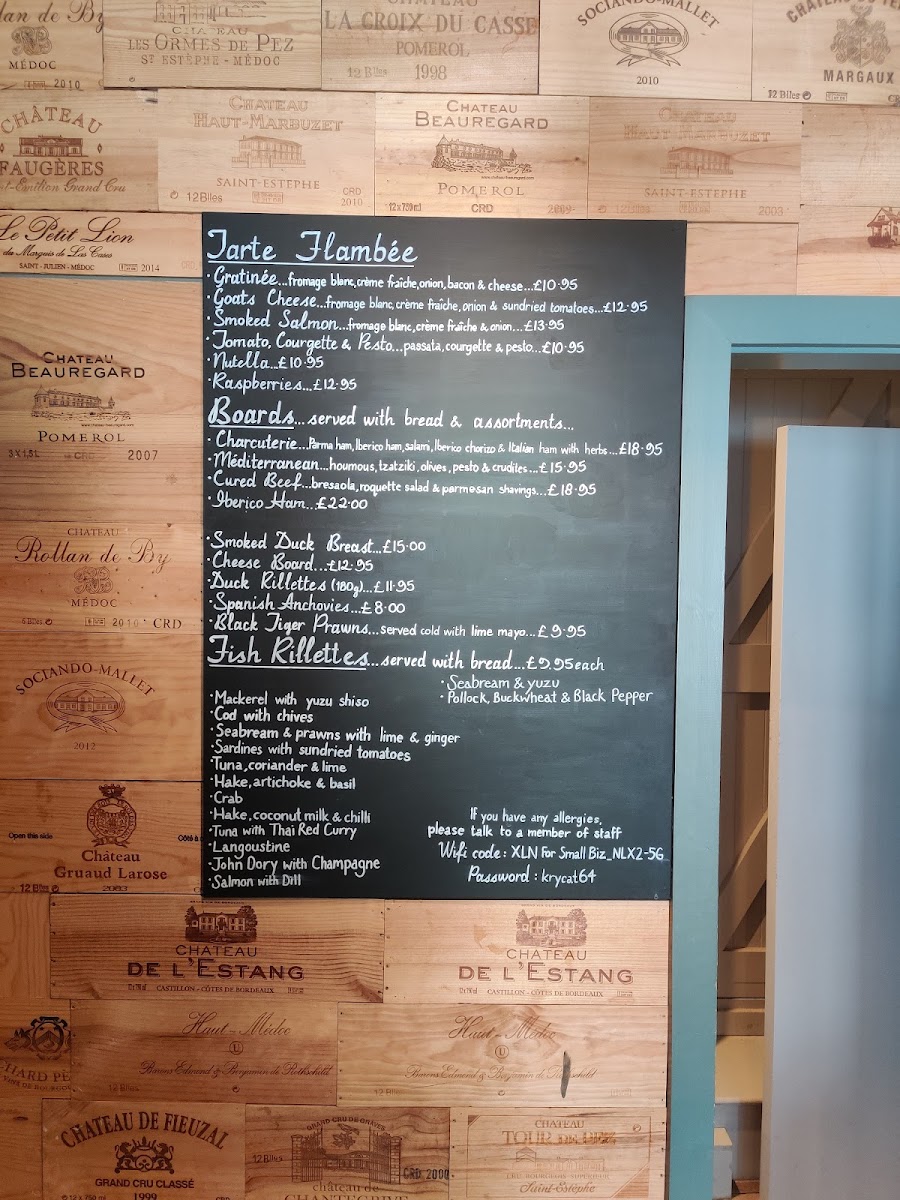 llan de By
MÉDOC
2010
CHATEAU
LES ORMES DE PEZ
ST ESTÈPHE - MÉDOC
CHATEAU
LA CROIX DU CASSE
POMEROL
12 Btles 1998
SOCIANDO-MALLET
2010
MARGAUX
12 Btles
CHÂTEAU
FAUGÈRES
Grand Cru
CHATEAU
HAUT-MARBUZET
SAINT-ESTEPHE
12 Btles
CRD
2010
CHATEAU
BEAUREGARD
POMEROL
12x750ml CRD 2009
CHATEAU
HAUT-MARBUZET
SAINT-ESTEPHE
2003
Le Petit Lion
du Marquis de Las Cases
SAINT-JULIEN-MÉDOC 2014
Tarte Flambée
·Gratinée...fromage blanc,crème fraîche,onion,bacon & cheese...£10.95
·Goats Cheese...fromage blanc,crème fraîche,onion & sundried tomatoes...£12.95
·Smoked Salmon...fromage blanc,crème fraîche & onion...£13.95
·Tomato, Courgette & Pesto...passata, courgette & pesto...£10.95
·Nutella...£10.95
·Raspberries...£12.95
Boards...served with bread & assortments...
·Charcuterie...Parma ham, Iberico ham, salami, Iberico chorizo & Italian ham with herbs...£18.95
·Méditerranean...houmous, tzatziki, olives, pesto & crudites...£15.95
·Cured Beef...bresaola, roquette salad & parmesan shavings...£18.95
·Iberico Ham...£22.00
·Smoked Duck Breast...£15.00
·Cheese Board...£12.95
·Duck Rillettes (180g)...£11.95
·Spanish Anchovies...£8.00
·Black Tiger Prawns...served cold with lime mayo...£9.95
Fish Rillettes...served with bread...£9.95 each
·Seabream & yuzu
·Pollock, Buckwheat & Black Pepper
·Mackerel with yuzu shiso
·Cod with chives
·Seabream & prawns with lime & ginger
·Sardines with sundried tomatoes
·Tuna, coriander & lime
·Hake, artichoke & basil
·Crab
·Hake, coconut milk & chilli
·Tuna with Thai Red Curry
·Langoustine
·John Dory with Champagne
·Salmon with Dill
If you have any allergies,
please talk to a member of staff
Wifi code: XLN For Small Biz_NLX2-5G
Password : krycat64
CHATEAU
BEAUREGARD
POMEROL
3X1,5L CRD 2007
CHATEAU
Rollan de By
MÉDOC
6 Btles 2010 CRD
SOCIANDO-MALLET
2012
Open this side
Château
Gruaud Larose
12 Btles 2003
CHATEAU
DE L'ESTANG
CASTILLON - CÔTES DE BORDEAUX
CHATEAU
DE L'ESTANG
CASTILLON - CÔTES DE BORDEAUX
Haut-Médoc
Baron Edmond & Benjamin de Rothschild
12 Btles
Haut-Médoc
Baron Edmond & Benjamin de Rothschild
CHATEAU DE FIEUZAL
GRAND CRU CLASSÉ
12 x 750 ml 1999
GRAND CRU DE GRAVES
12 Btles
CRD 2000
château de
CHANTEGRIVE
CHATEAU
TOUR DE
CRU BOURGEOIS SUPERIEUR
Saint-Estèphe